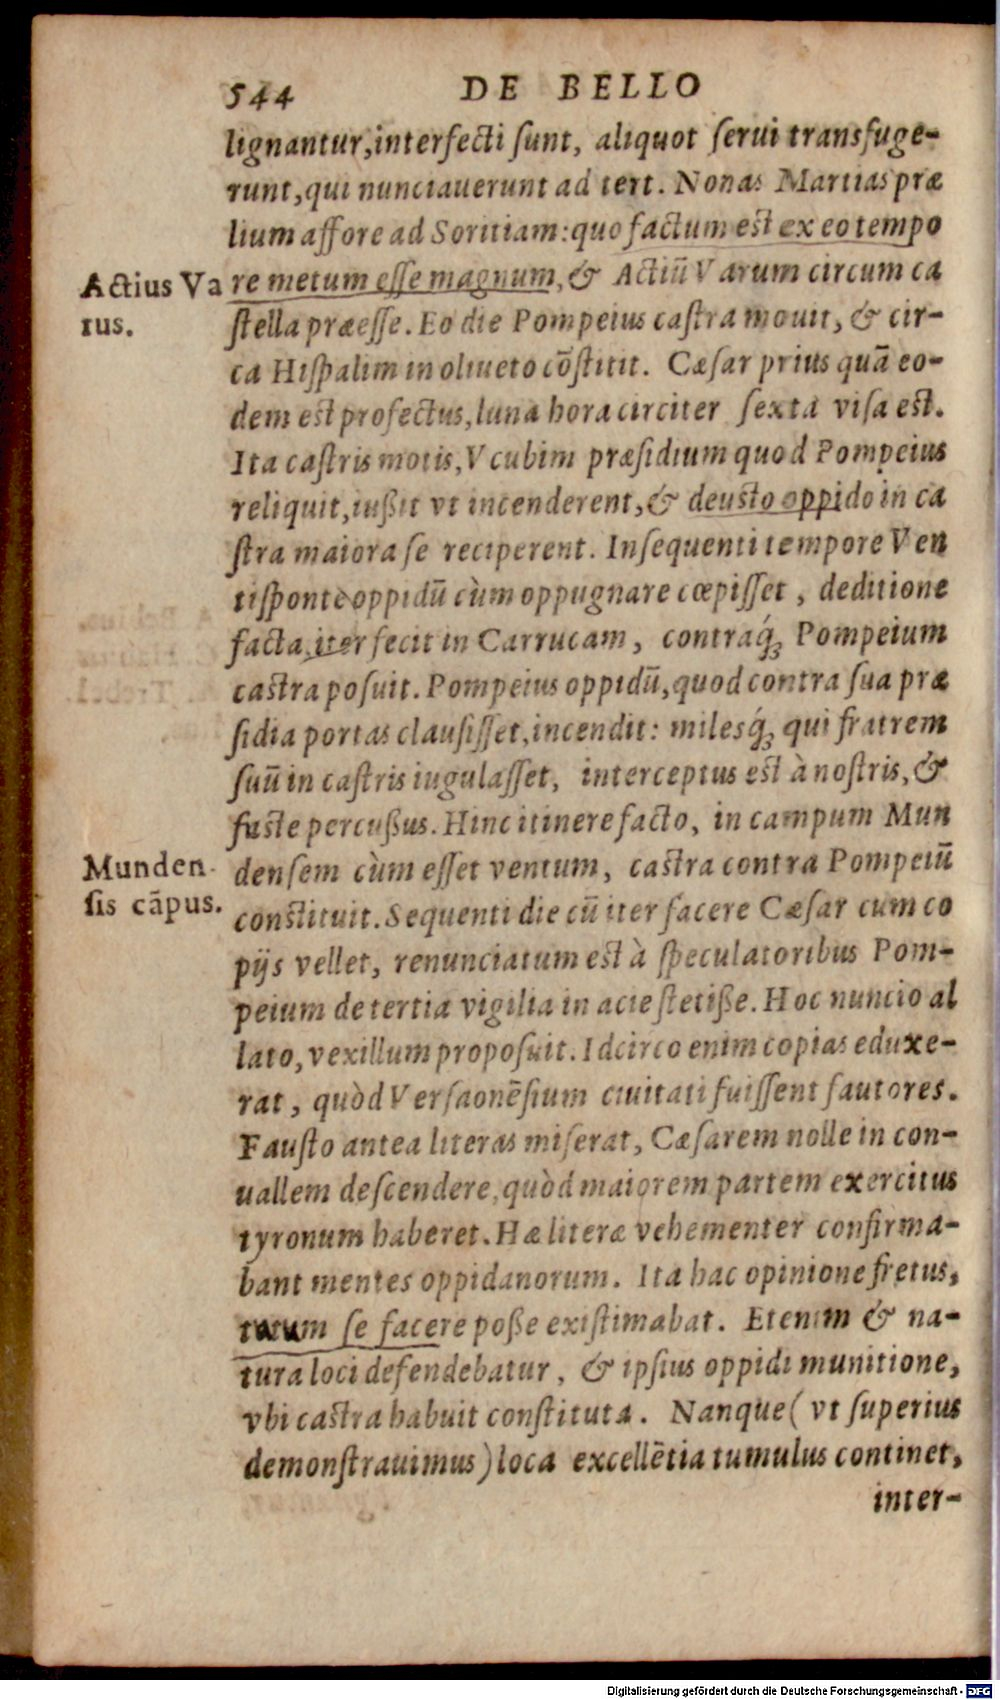 544 DE BELLO
lignantur, interfecti sunt, aliquot serui transfuge-
runt, qui nunciauerunt ad tert. Nonas Martias præ
lium affore ad Soritiam: quo factum est ex eo tempo
Actius Va
rus.
re metum esse magnum, & Actiū Varum circum ca
stella præesse. Eo die Pompeius castra mouit, & cir-
ca Hispalim in oliueto cōstitit. Cæsar prius quā eo-
dem est profectus, luna hora circiter sexta visa est.
Ita castris motis, Vcubim præsidium quod Pompeius
reliquit, iußit vt incenderent, & deusto oppido in ca
stra maiora se reciperent. Insequenti tempore Ven
tisponte oppidū cùm oppugnare cœpisset, deditione
facta, iter fecit in Carrucam, contraq́ꝫ Pompeium
castra posuit. Pompeius oppidū, quod contra sua præ
sidia portas clausisset, incendit: milesq́ꝫ qui fratrem
suū in castris iugulasset, interceptus est à nostris, &
fuste percußus. Hinc itinere facto, in campum Mun
Munden-
sis cāpus.
densem cùm esset ventum, castra contra Pompeiū
constituit. Sequenti die cū iter facere Cæsar cum co
pijs vellet, renunciatum est à speculatoribus Pom-
peium de tertia vigilia in acie stetiße. Hoc nuncio al
lato, vexillum proposuit. Idcirco enim copias eduxe-
rat, quòd Versaonēsium ciuitati fuissent fautores.
Fausto antea literas miserat, Cæsarem nolle in con-
uallem descendere, quòd maiorem partem exercitus
tyronum haberet. Hæ literæ vehementer confirma-
bant mentes oppidanorum. Ita hac opinione fretus,
tutum se facere poße existimabat. Etenim & na-
tura loci defendebatur, & ipsius oppidi munitione,
vbi castra habuit constituta. Nanque (vt superius
demonstrauimus) loca excellētia tumulus continet,
inter-
Digitalisierung gefördert durch die Deutsche Forschungsgemeinschaft - DFG